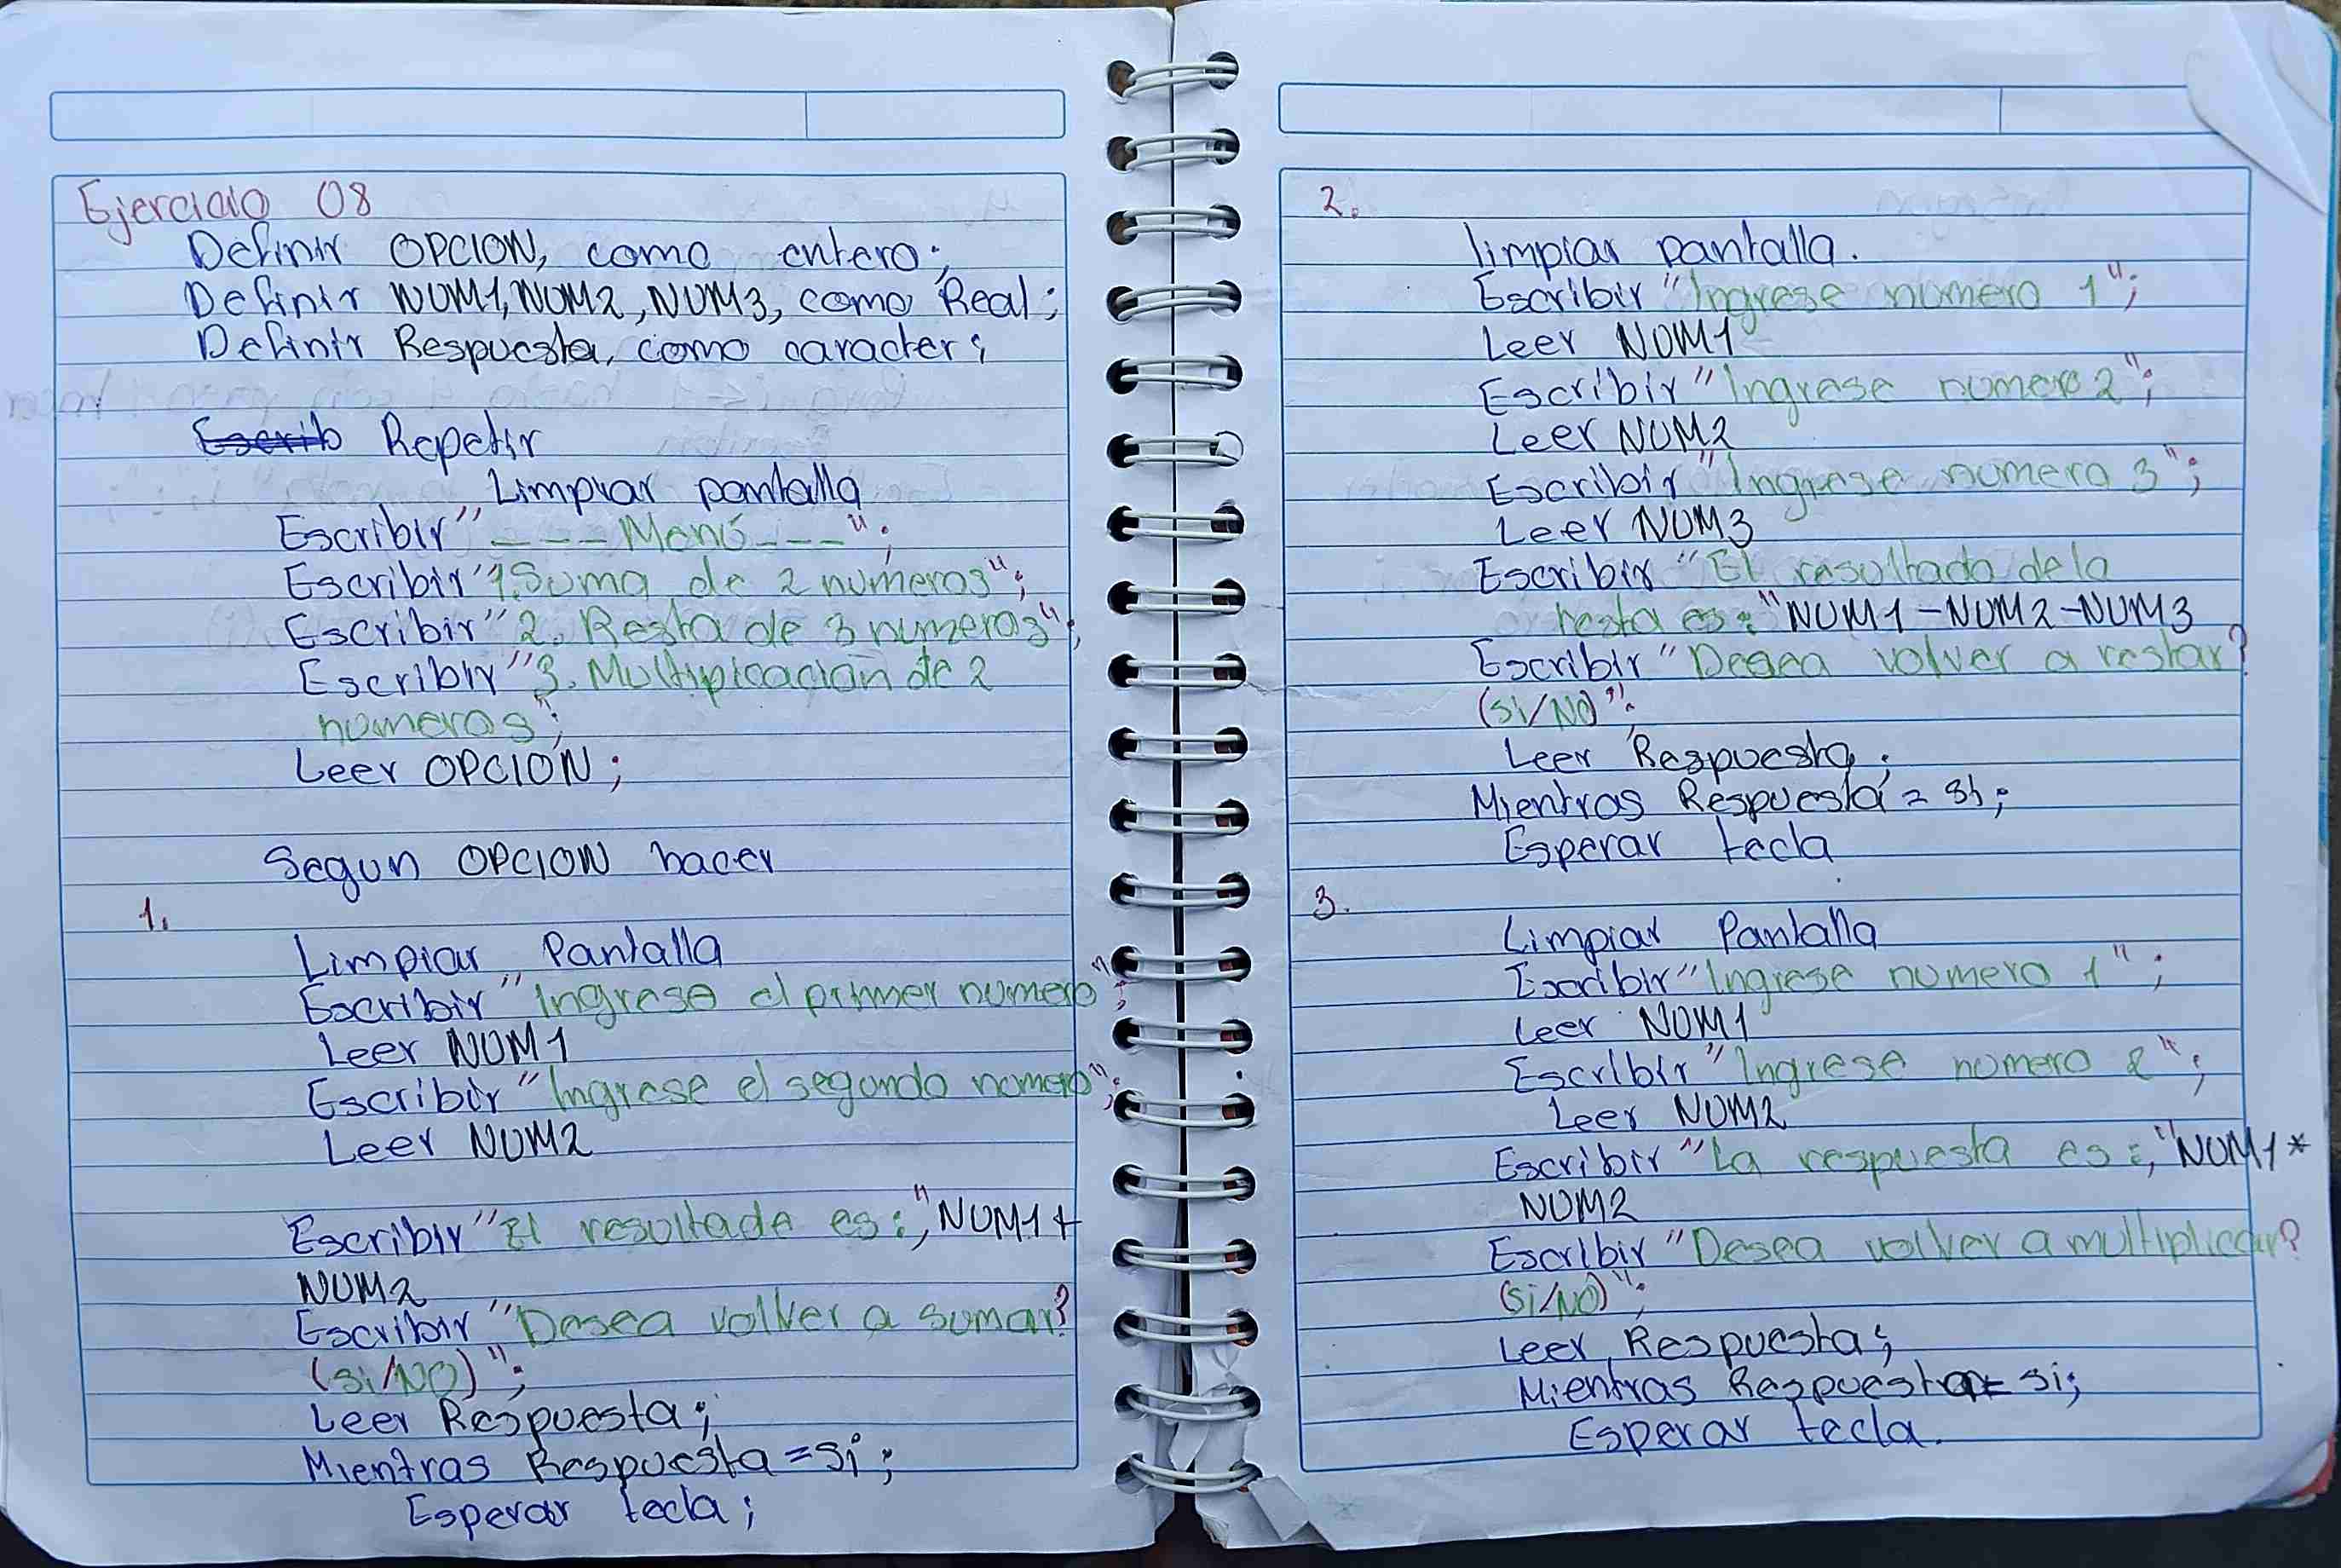 Ejercicio 08
Definir OPCION, como entero;
Definir NUM1, NUM2, NUM3, como Real;
Definir Respuesta, como caracter;
Escrib Repetir
Limpiar pantalla
Escribir "----Menú---";
Escribir "1. Suma de 2 numeros";
Escribir "2. Resta de 3 numeros";
Escribir "3. Multiplicación de 2
numeros";
Leer OPCION;
Segun OPCION hacer
1.
Limpiar Pantalla
Escribir "Ingrese el primer numero";
Leer NUM1
Escribir "Ingrese el segundo numero";
Leer NUM2
Escribir "El resultado es:," NUM1+
NUM2
Escribir "Desea volver a sumar?
(si/NO)";
Leer Respuesta;
Mientras Respuesta = si;
Esperar tecla;
2.
limpiar pantalla.
Escribir "Ingrese numero 1";
Leer NUM1
Escribir "Ingrese numero 2";
Leer NUM2
Escribir "Ingrese numero 3";
Leer NUM3
Escribir "El resultado de la
resta es: "NUM1-NUM2-NUM3
Escribir "Desea volver a restar?
(si/NO)";
Leer Respuesta;
Mientras Respuesta = si;
Esperar tecla
3.
Limpiar Pantalla
Escribir "Ingrese numero 1";
Leer NUM1
Escribir "Ingrese numero 2";
Leer NUM2
Escribir "La respuesta es:," NUM1*
NUM2
Escribir "Desea volver a multiplicar?
(si/NO)";
Leer Respuesta;
Mientras Respuesta = si;
Esperar tecla.